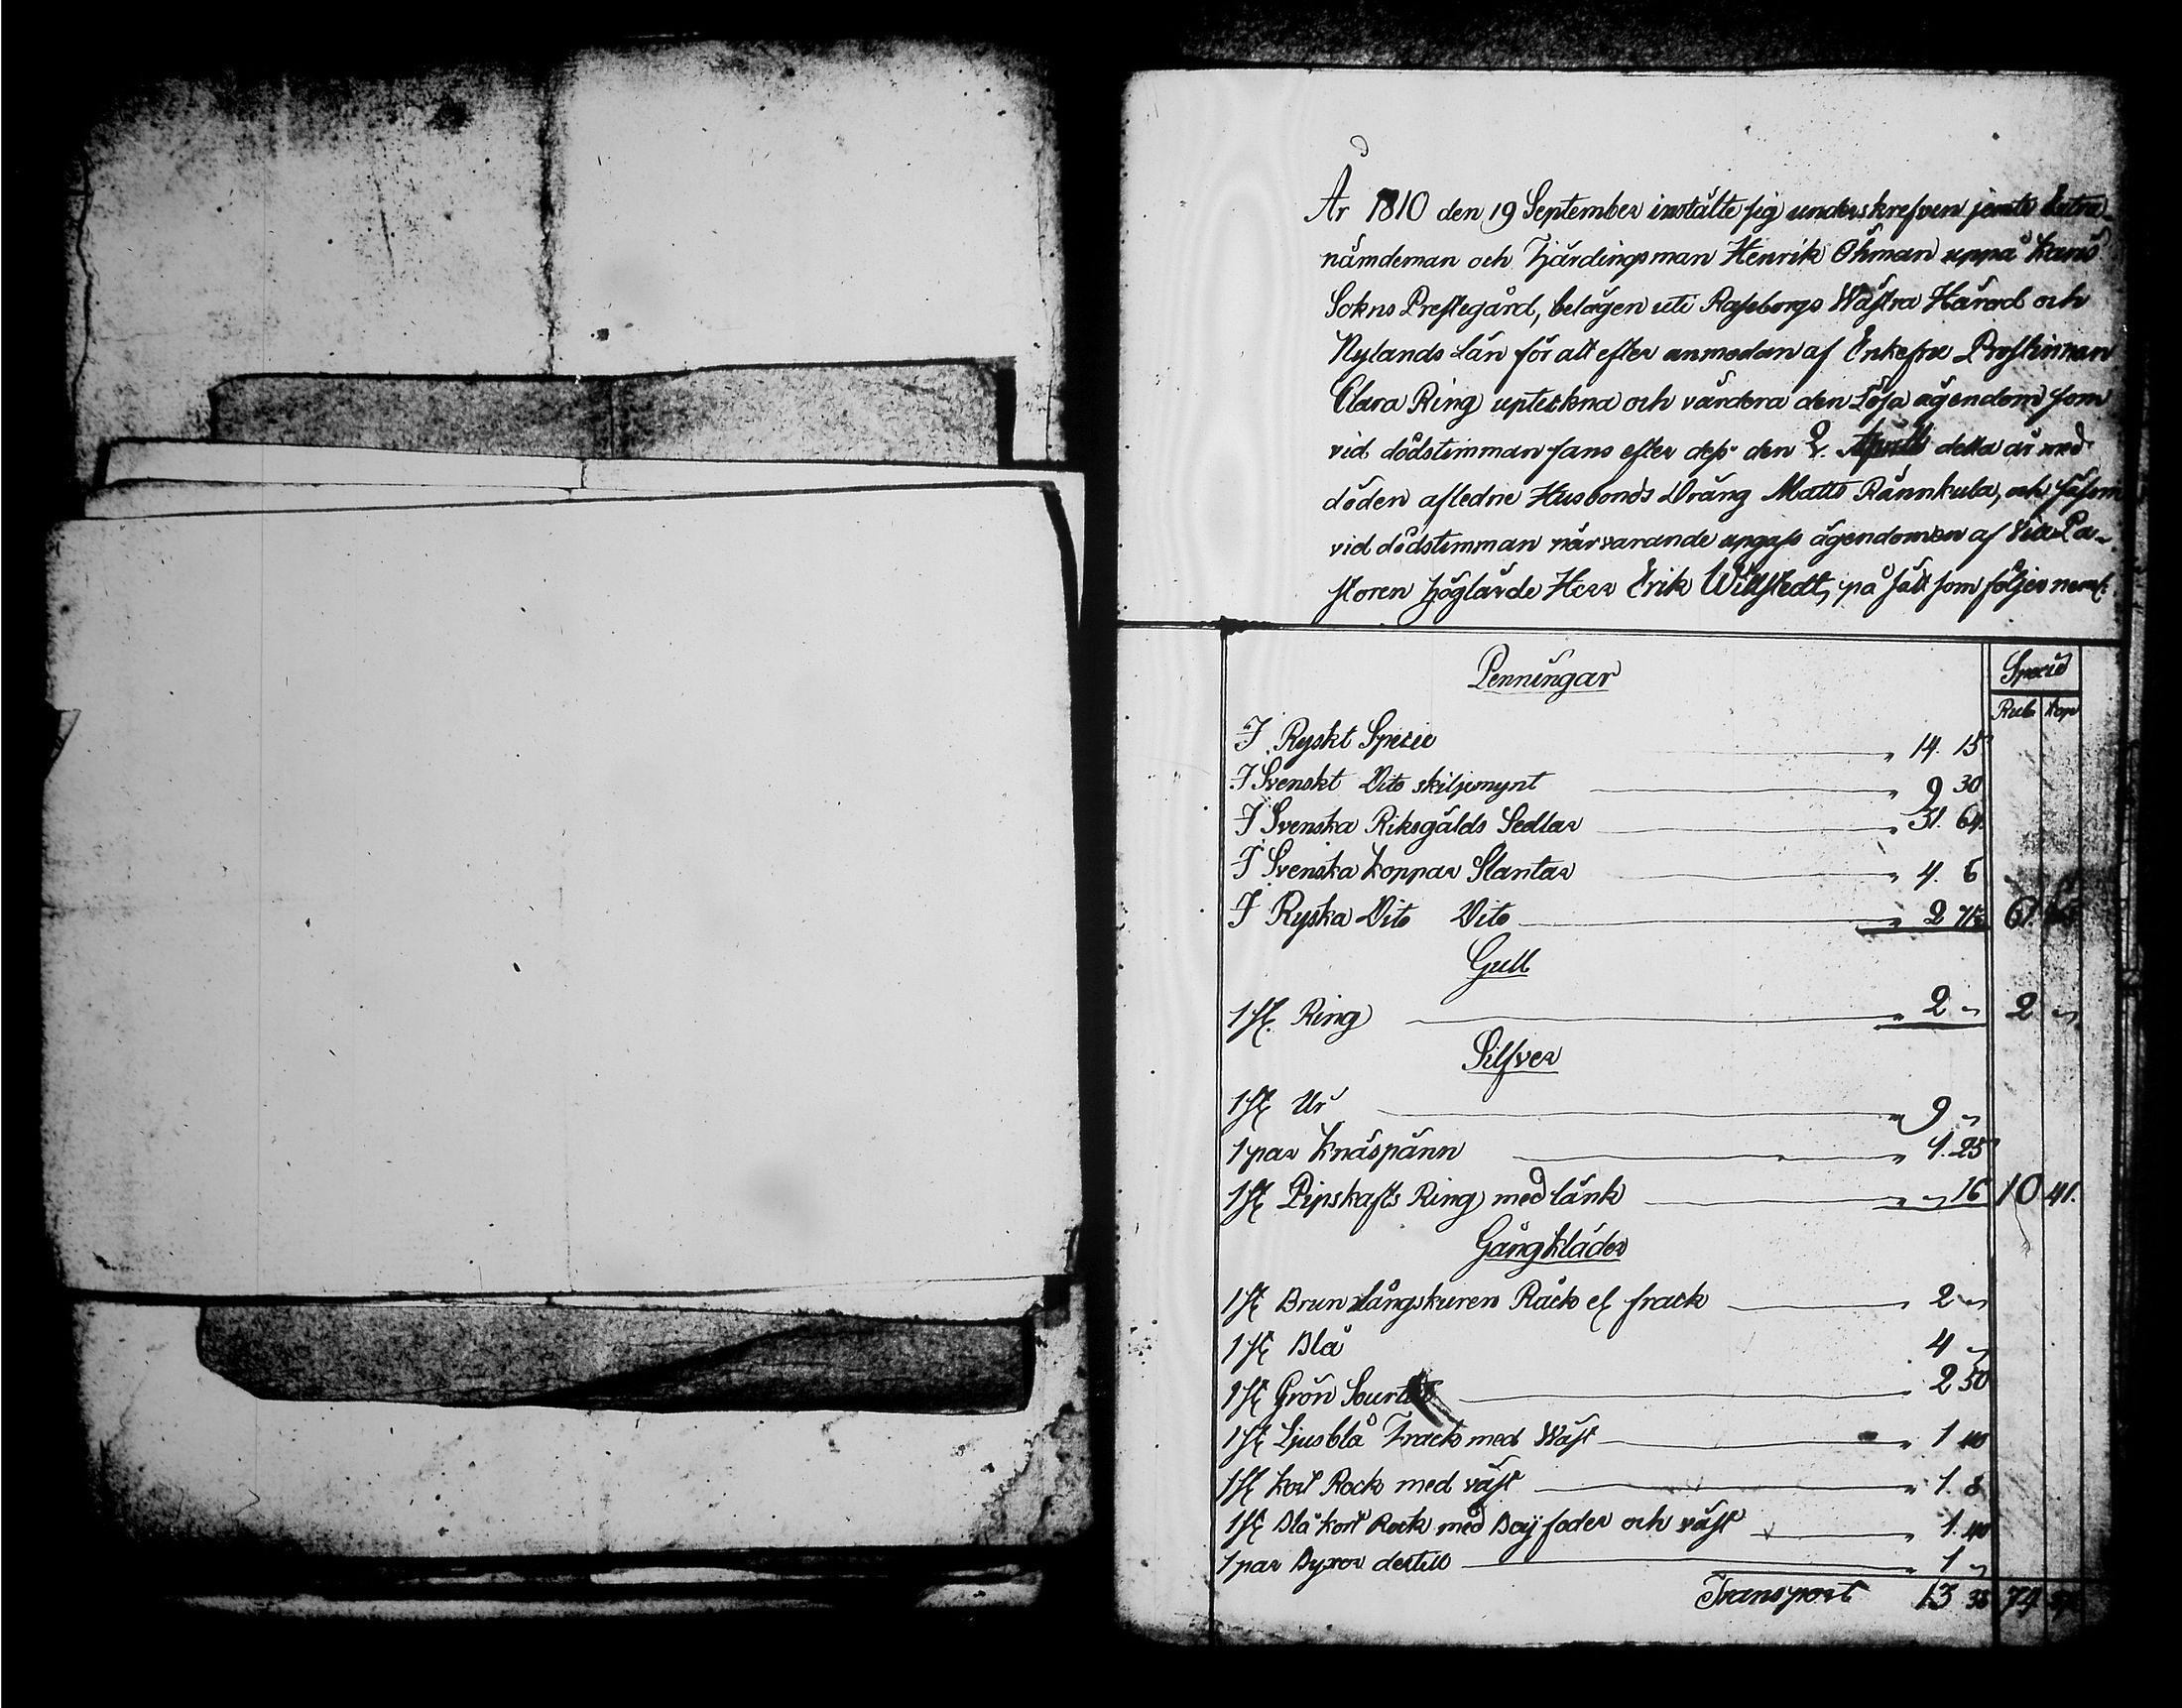 År 1810 den 19 September instälte sig underskrefven jemte Extra
nämdeman och Fjärdingsman Henrik Öhman uppå Karis
Sokns Prestegård, belägen uti Raseborgs Wästra Härad och
Nylands Län för att efter anmodan af Enkefru Prostinnan
Clara Ring uptekna och värdera den Lösa ägendom som
vid dödstimman fans efter dess den 2. Aprill detta år med
döden afledne Husbonds Dräng Matts Rännkula, och såsom
vid dödstimman närvarande upgafs ägendomen af Vice Pa-
storen höglärde Herr Erik Willstedt, på sätt som följer neml:
Penningar
Specie
Rub Kop
I Ryskt Specie 14. 15
I Svenskt Dito skiljemynt 9 30
I Svenska Riksgälds Sedlar 31. 64.
I Svenska Koppar Slantar 4. 6
I Ryska Dito Dito 2 61.
Gull
1 st. Ring 2 " 2 "
Silfver
1 st Ur 9 "
1 par Knäspänn 1. 25
1 st Pipskafts Ring med länk " 16 10 41.
Gångkläder
1 st Brun Långskuren Råck el frack 2 "
1 st Blå 4 "
1 st Grön 2 50
1 st Ljusblå Frack med Wäst 1 40
1 st Kort Rock med väst 1. 8
1 st Blå kort Rock med Boij foder och väst 1. 40
1 par Byxor dertill 1 "
Transport 13 38 74